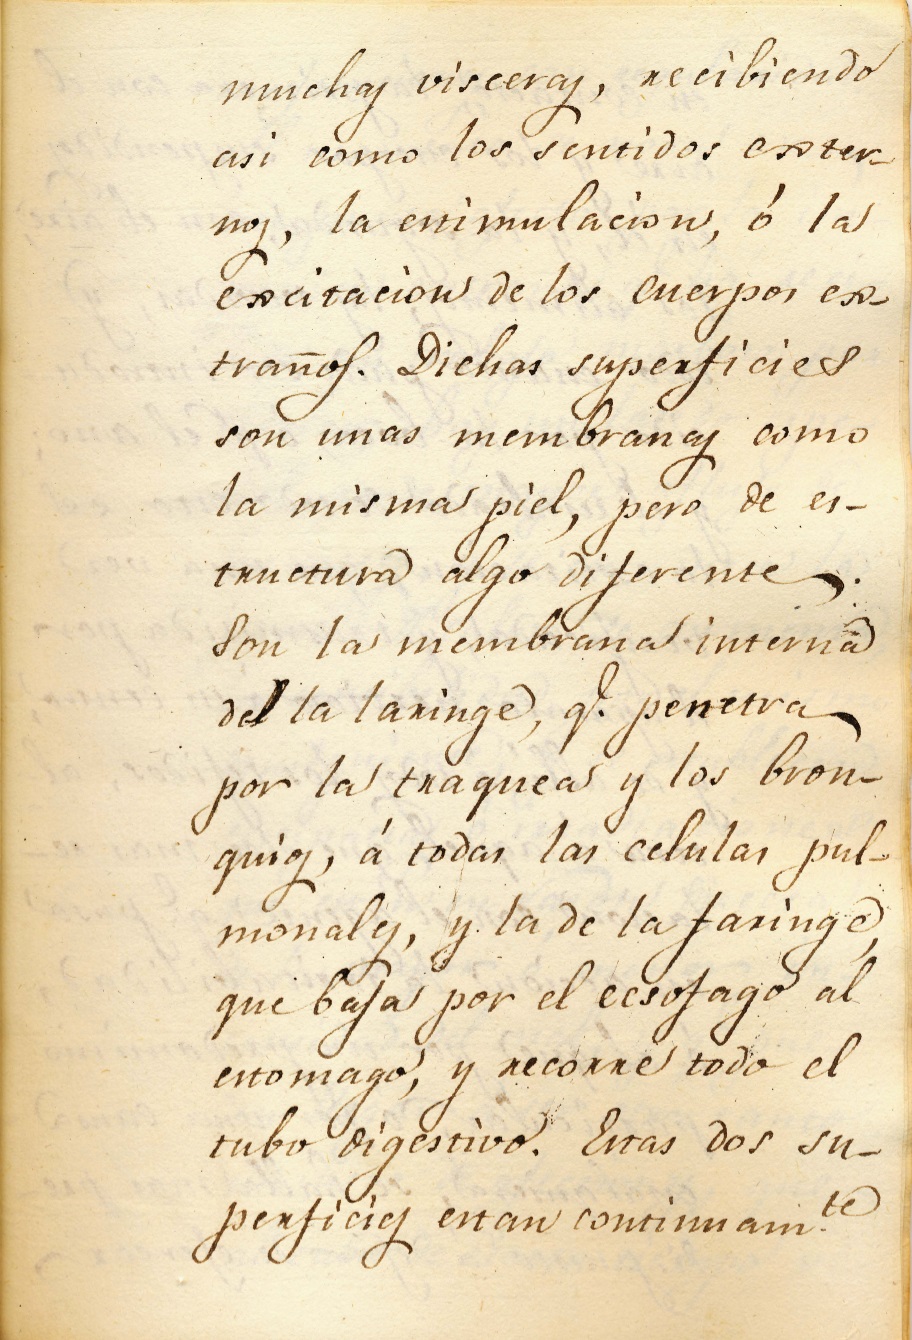 muchas visceras, recibiendo
asi como los sentidos exter-
nos, la estimulacion, ó la
excitacion de los cuerpos ex-
traños. Dichas superficies
son unas membranas como
la misma piel, pero de es-
tructura algo diferente.
Son la membrana interna
del la laringe, q.e penetra
por la traquea y los bron-
quios, á todas las celulas pul-
monales, y la de la faringe,
que baja por el eesofago al
estomago, y recorre todo el
tubo digestivo. Estas dos su-
perficies estan continuam.te